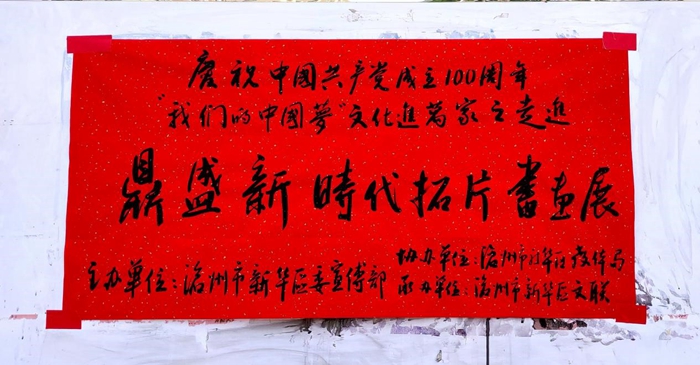 慶祝中國共产党成立100周年
"我们的中國夢"文化進萬家之走進
鼎盛新時代拓片書画展
主办单位:滄州市新华区委宣傳部
协办单位:滄州市新华区教体局
承办单位:滄州市新华区文联